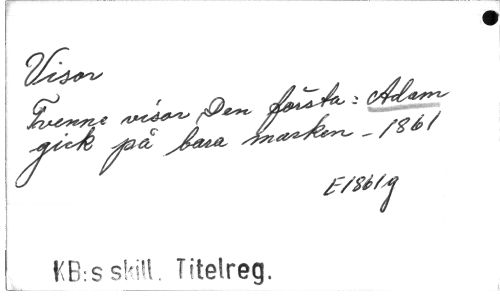 Visor
Tvenne visor Den första: Adam
gick på bara marken - 1861
E1861g
KB:s skill. Titelreg.